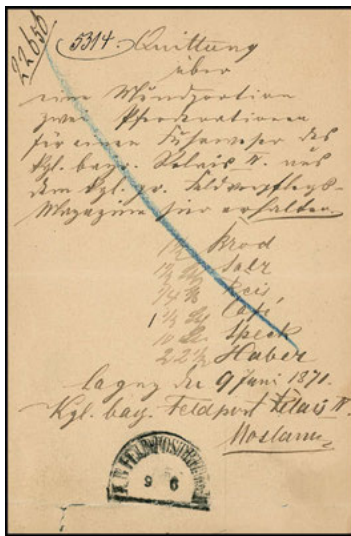 22656
5314. Quittung
über
eine Mundportion
zwei Pferderationen
für einen Fuhrweser des
Kgl. bayr. Relais V. aus
dem Kgl. pr. Feldverpflegs-
Magazine hier erhalten.
Brod
Salz
Reis,
1 1/2 Café
10 Speck
22 1/2 Haber
Lagny den 9 Juni 1871.
Kgl. bay. Feldpost Relais V.
9 6